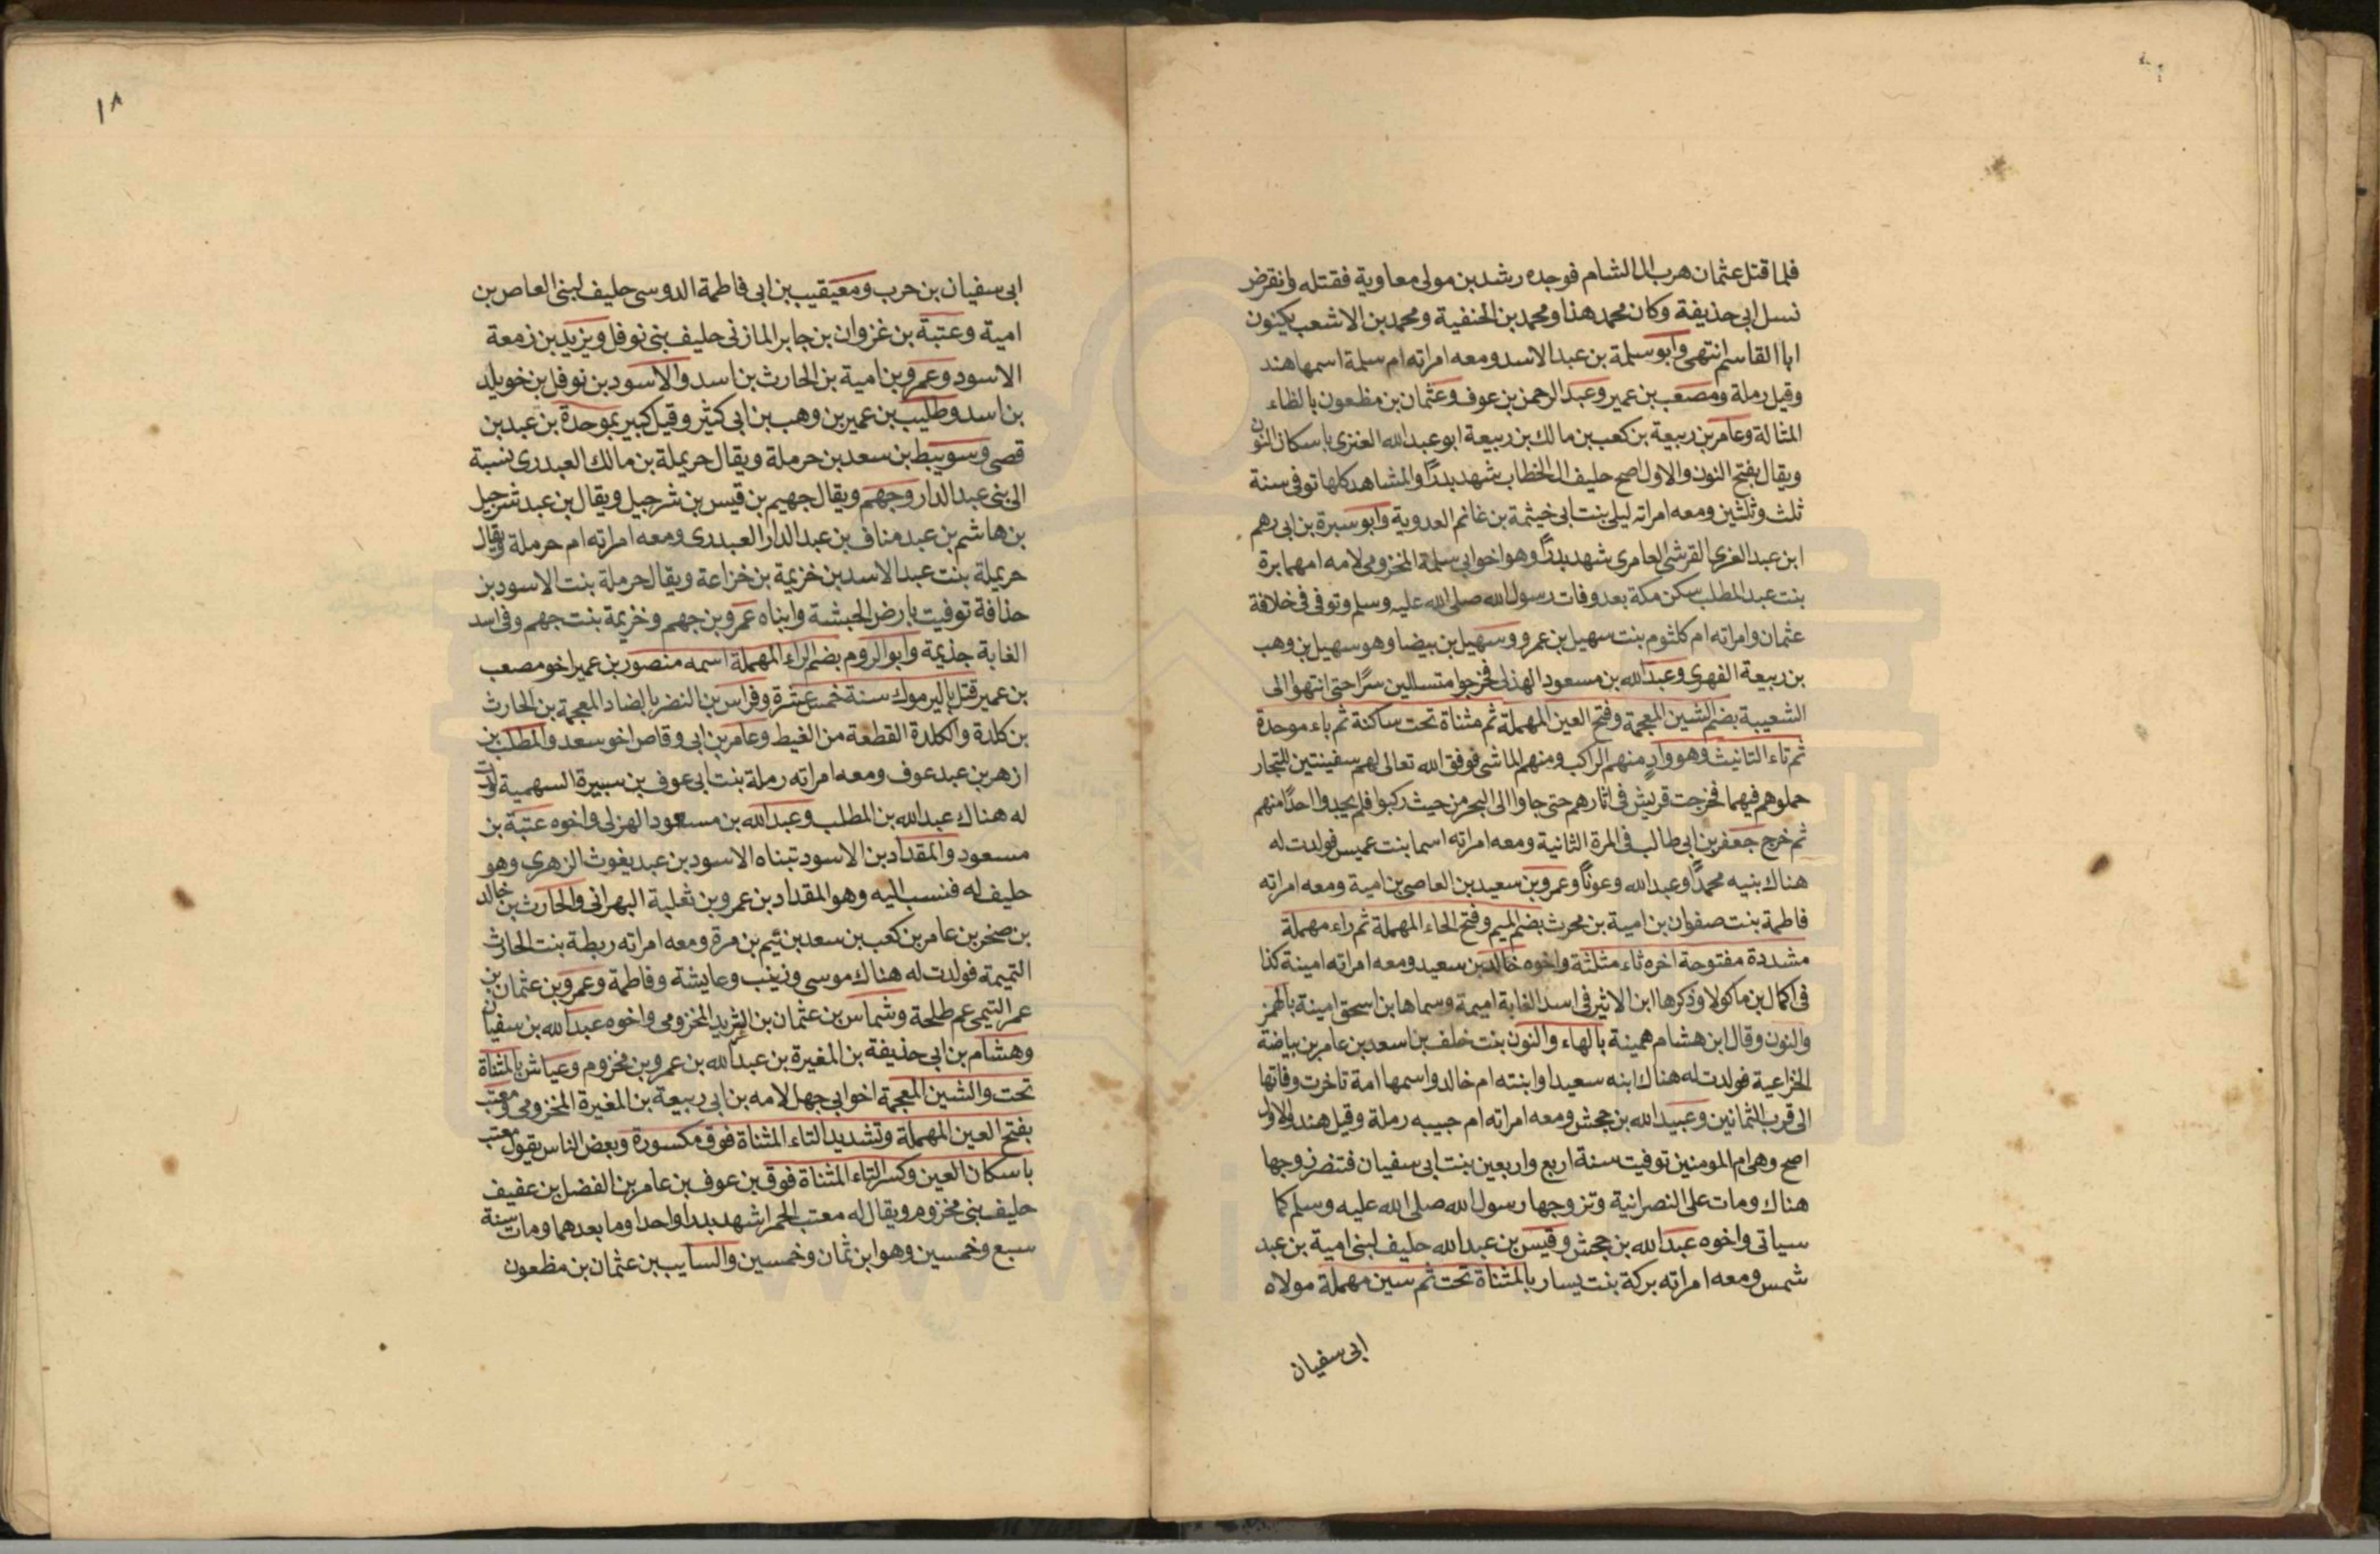 فلما قتل عثمان هرب الى الشام فوجده رشدين مولى معاوية فقتله وانقرض
نسل ابى حذيفة وكان محمد هذا ومحمد بن الحنفية ومحمد بن الاشعب يكنون
ابا القاسم انتهى وابو سلمة بن عبد الاسد ومعه امراته ام سلمة اسمها هند
وقيل رملة ومصعب بن عمير وعبد الرحمن بن عوف وعثمان بن مظعون بالظاء
المثالة وعامر بن ربيعة بن كعب بن مالك بن ربيعة ابو عبد الله العنزى باسكان النون
ويقال بفتح النون والاول اصح حليف ال الخطاب شهد بدرًا والمشاهد كلها توفى سنة
ثلث وثلثين ومعه امراته ليلى بنت ابى خيثمة بن غانم العدوية وابو سبرة بن ابى رهم
ابن عبد العزى القرشى العامرى شهد بدرًا وهو اخو ابى سلمة المخزومى لامه امهما برة
بنت عبد المطلب سكن مكة بعد وفات رسول الله صلى الله عليه وسلم وتوفى فى خلافة
عثمان وامراته ام كلثوم بنت سهيل بن عمرو وسهيل بن بيضا وهو سهيل بن وهب
بن ربيعة الفهرى وعبد الله بن مسعود الهذلى فخرجوا متسللين سرًا حتى انتهوا الى
الشعيبة بضم الشين المعجمة وفتح العين المهملة ثم مثناة تحت ساكنة ثم باء موحدة
ثم تاء التانيث وهو وادٍ منهم الراكب ومنهم الماشى فوفق الله تعالى لهم سفينتين للتجار
حملوهم فيهما فخرجت قريش فى اثارهم حتى جاوا الى البحر من حيث ركبوا فلم يجدوا احدًا منهم
ثم خرج جعفر بن ابى طالب فى المرة الثانية ومعه امراته اسما بنت عميس فولدت له
هناك بنيه محمدًا وعبد الله وعونًا وعمرو بن سعيد بن العاصى بن امية ومعه امراته
فاطمة بنت صفوان بن امية بن محرث بضم الميم وفتح الحاء المهملة ثم راء مهملة
مشددة مفتوحة اخره ثاء مثلثة واخوه خالد بن سعيد ومعه امراته امينة كذا
فى اكمال بن ماكولا وذكرها ابن الاثير فى اسد الغابة اميمة وسماها بن اسحق امينة بالهمز
والنون وقال ابن هشام همينة بالهاء والنون بنت خلف بن اسعد بن عامر بن بياضة
الخزاعية فولدت له هناك ابنه سعيدا وابنته ام خالد واسمها امة تاخرت وفاتها
الى قرب الثمانين وعبيد الله بن جحش ومعه امراته ام حبيبه رملة وقيل هند والاول
اصح وهى ام المومنين توفيت سنة اربع واربعين بنت ابى سفيان فتنصر زوجها
هناك ومات على النصرانية وتزوجها رسول الله صلى الله عليه وسلم كما
سياتى واخوه عبد الله بن جحش وقيس بن عبد الله حليف لبنى امية بن عبد
شمس ومعه امراته بركة بنت يسار بالمثناة تحت ثم سين مهملة مولاه
ابى سفيان
١٨
ابى سفيان بن حرب ومعيقيب بن ابى فاطمة الدوسى حليف لبنى العاص بن
امية وعتبة بن غزوان بن جابر المازنى حليف بنى نوفل ويزيد بن زمعة
الاسود وعمرو بن امية بن الحارث بن اسد والاسود بن نوفل بن خويلد
بن اسد وطليب بن عمير بن وهب بن ابى كثير وقيل كبير بموحدة بن عبد بن
قصى وسويبط بن سعد بن حرملة ويقال حريملة بن مالك العبدرى نسبة
الى بنى عبد الدار وجهم ويقال جهيم بن قيس بن شرجيل ويقال بن عبد شرجيل
بن هاشم بن عبد مناف بن عبد الدار العبدرى ومعه امراته ام حرملة ويقال
حريملة بنت عبد الاسد بن خزيمة بن خزاعة ويقال حرملة بنت الاسود بن
حذافة توفيت بارض الحبشة وابناه عمرو بن جهم وخزيمة بنت جهم وفى اسد
الغابة جذيمة وابو الروم بضم الراء المهملة اسمه منصور بن عمير اخو مصعب
بن عمير قتل باليرموك سنة خمس عشرة وفراس بن النضر بالضاد المعجمة بن الحارث
بن كلدة والكلدة القطعة من الغيط وعامر بن ابى وقاص اخو سعد والمطلب بن
ازهر بن عبد عوف ومعه امراته رملة بنت ابى عوف بن سبيرة السهمية ولدت
له هناك عبد الله بن المطلب وعبد الله بن مسعود الهزلى واخوه عتبة بن
مسعود والمقداد بن الاسود تبناه الاسود بن عبد يغوث الزهرى وهو
حليف له فنسب اليه وهو المقداد بن عمرو بن ثعلبة البهرانى والحارث بن خالد
بن صخر بن عامر بن كعب بن سعد بن تيم بن مرة ومعه امراته ريطة بنت الحارث
التميمة فولدت له هناك موسى وزينب وعايشة وفاطمة وعمرو بن عثمان بن
عمر التيمى عم طلحة وشماس بن عثمان بن الشريد المخزومى واخوه عبد الله بن سفيان
وهشام بن ابى حذيفة بن المغيرة بن عبد الله بن عمرو بن مخزوم وعياش بالمثناة
تحت والشين المعجمة اخو ابى جهل لامه بن ابى ربيعة بن المغيرة المخزومى ومعتب
بفتح العين المهملة وتشديد التاء المثناة فوق مكسورة وبعض الناس يقول معتب
باسكان العين وكسر التاء المثناة فوق بن عوف بن عامر بن الفضل بن عفيف
حليف بنى مخزوم ويقال له معتب الحمرا شهد بدرا واحدا وما بعدهما ومات سنة
سبع وخمسين وهو ابن ثمان وخمسين والسايب بن عثمان بن مظعون